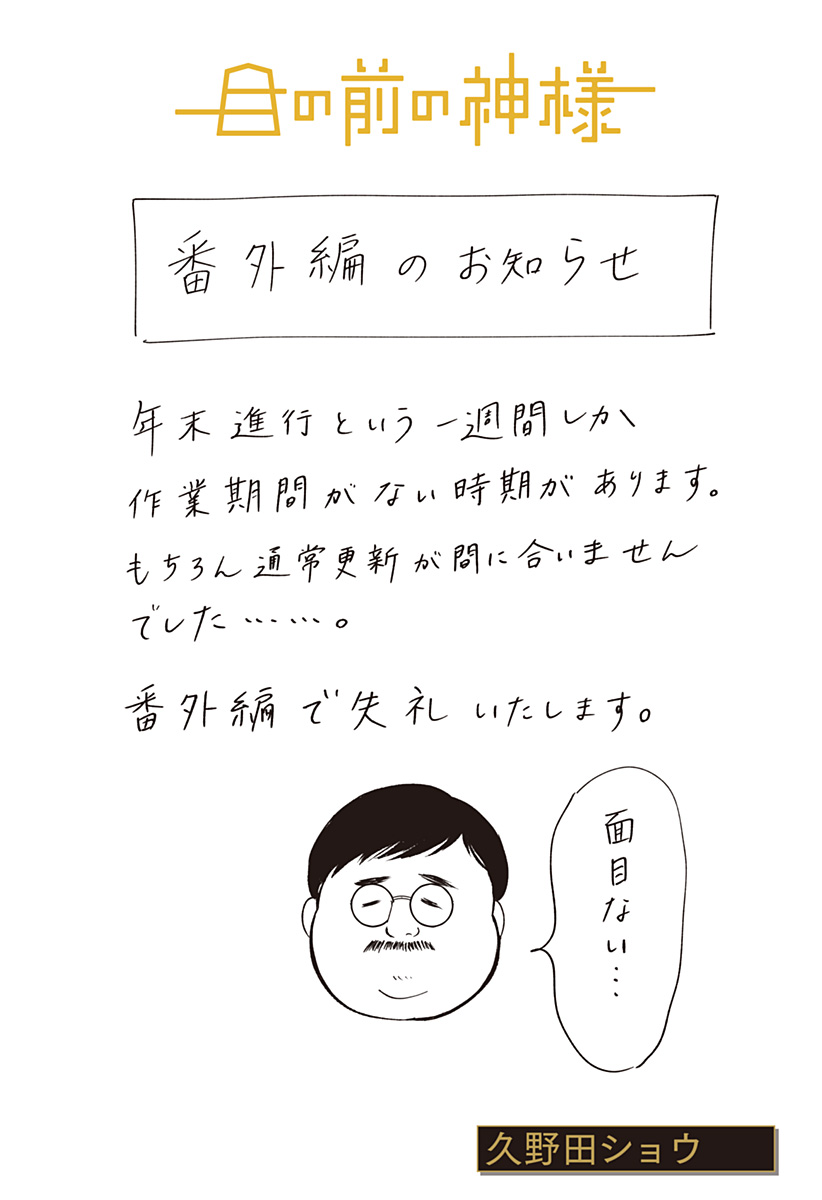 目の前の神様
番外編のお知らせ
年末進行という一週間しか
作業期間がない時期があります。
もちろん通常更新が間に合いません
でした……。
番外編で失礼いたします。
面目ない…
久野田ショウ